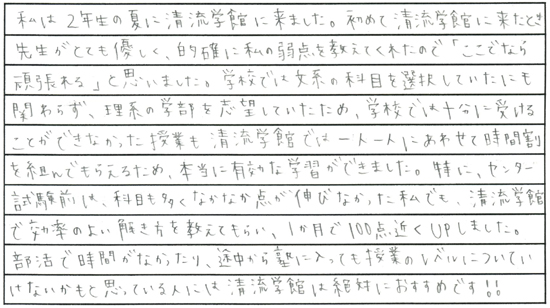 私は2年生の夏に清流学館に来ました。初めて清流学館に来たとき
先生がとても優しく、的確に私の弱点を教えてくれたので「ここでなら
頑張れる」と思いました。学校では文系の科目を選択していたにも
関わらず、理系の学部を志望していたため、学校では十分に受ける
ことができなかった授業も清流学館では一人一人にあわせて時間割
を組んでもらえるため、本当に有効な学習ができました。特に、センター
試験前は、科目も多くなかなか点が伸びなかった私でも、清流学館
で効率のよい解き方を教えてもらい、1か月で100点近くUPしました。
部活で時間がなかったり、途中から塾に入っても授業のレベルについてい
けないかもと思っている人には清流学館は絶対におすすめです!!